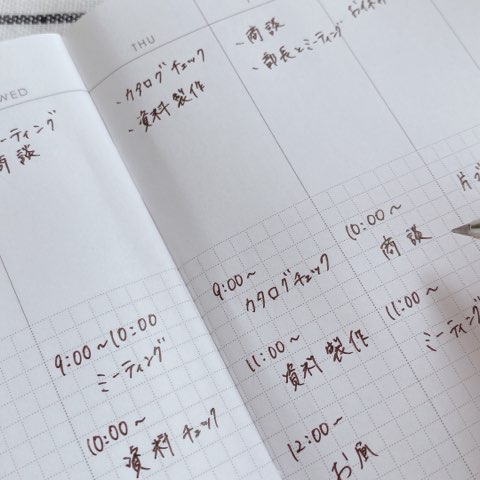 WED
ーティング
商談
9:00~10:00
ミーティング
10:00~
資料チェック
THU
、カタログチェック
、資料製作
9:00~
カタログチェック
11:00~
資料製作
12:00~
、商談
、部長とミーティング
10:00~
商談
11:00~
ミーティング